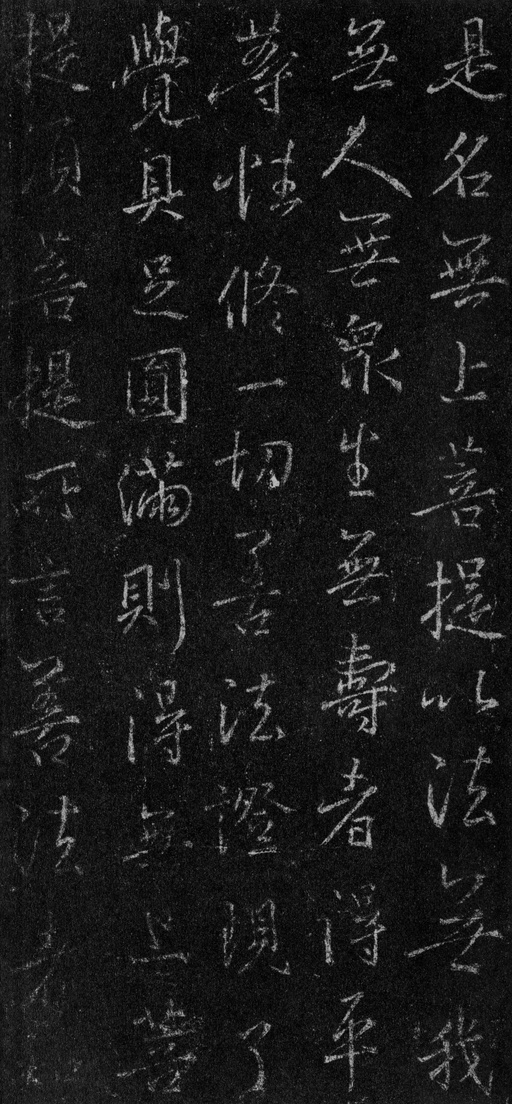 是名無上菩提以法無我
無人無眾生無壽者得平
等性修一切善法證現了
覺具足圓滿則得無上菩
提須菩提所言善法者